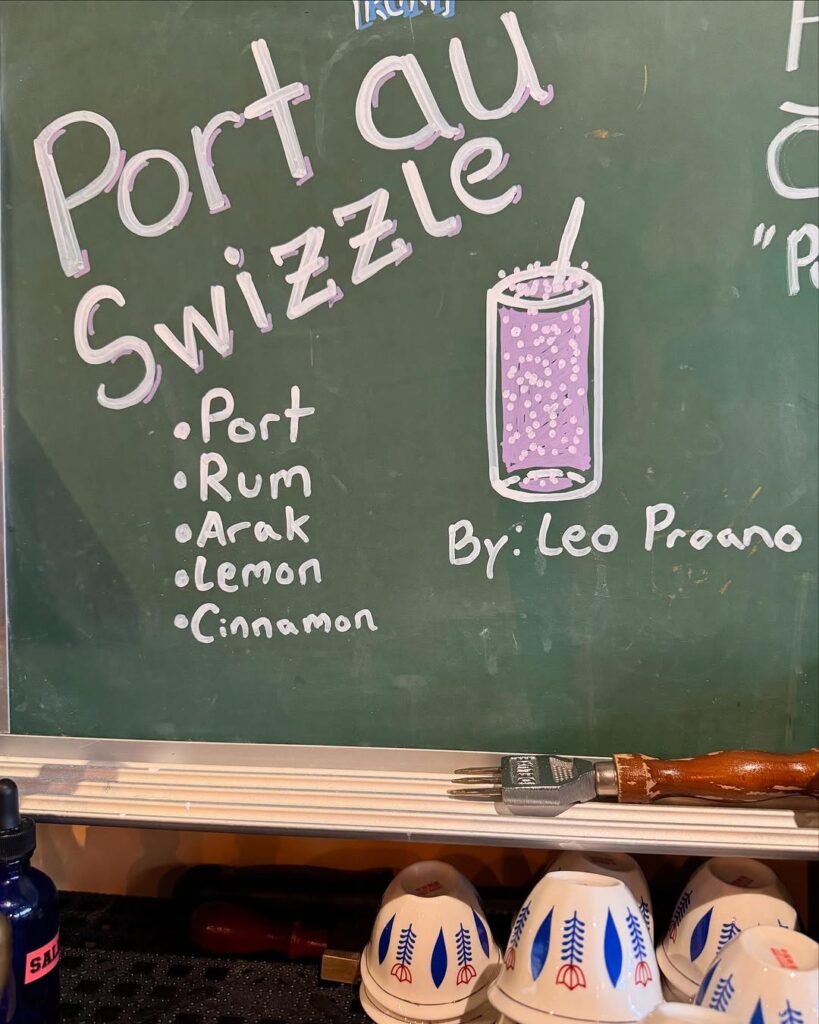 [RUM]
Port au
Swizzle
• Port
• Rum
• Arak
• Lemon
• Cinnamon
By: Leo Proano
"P
SAL